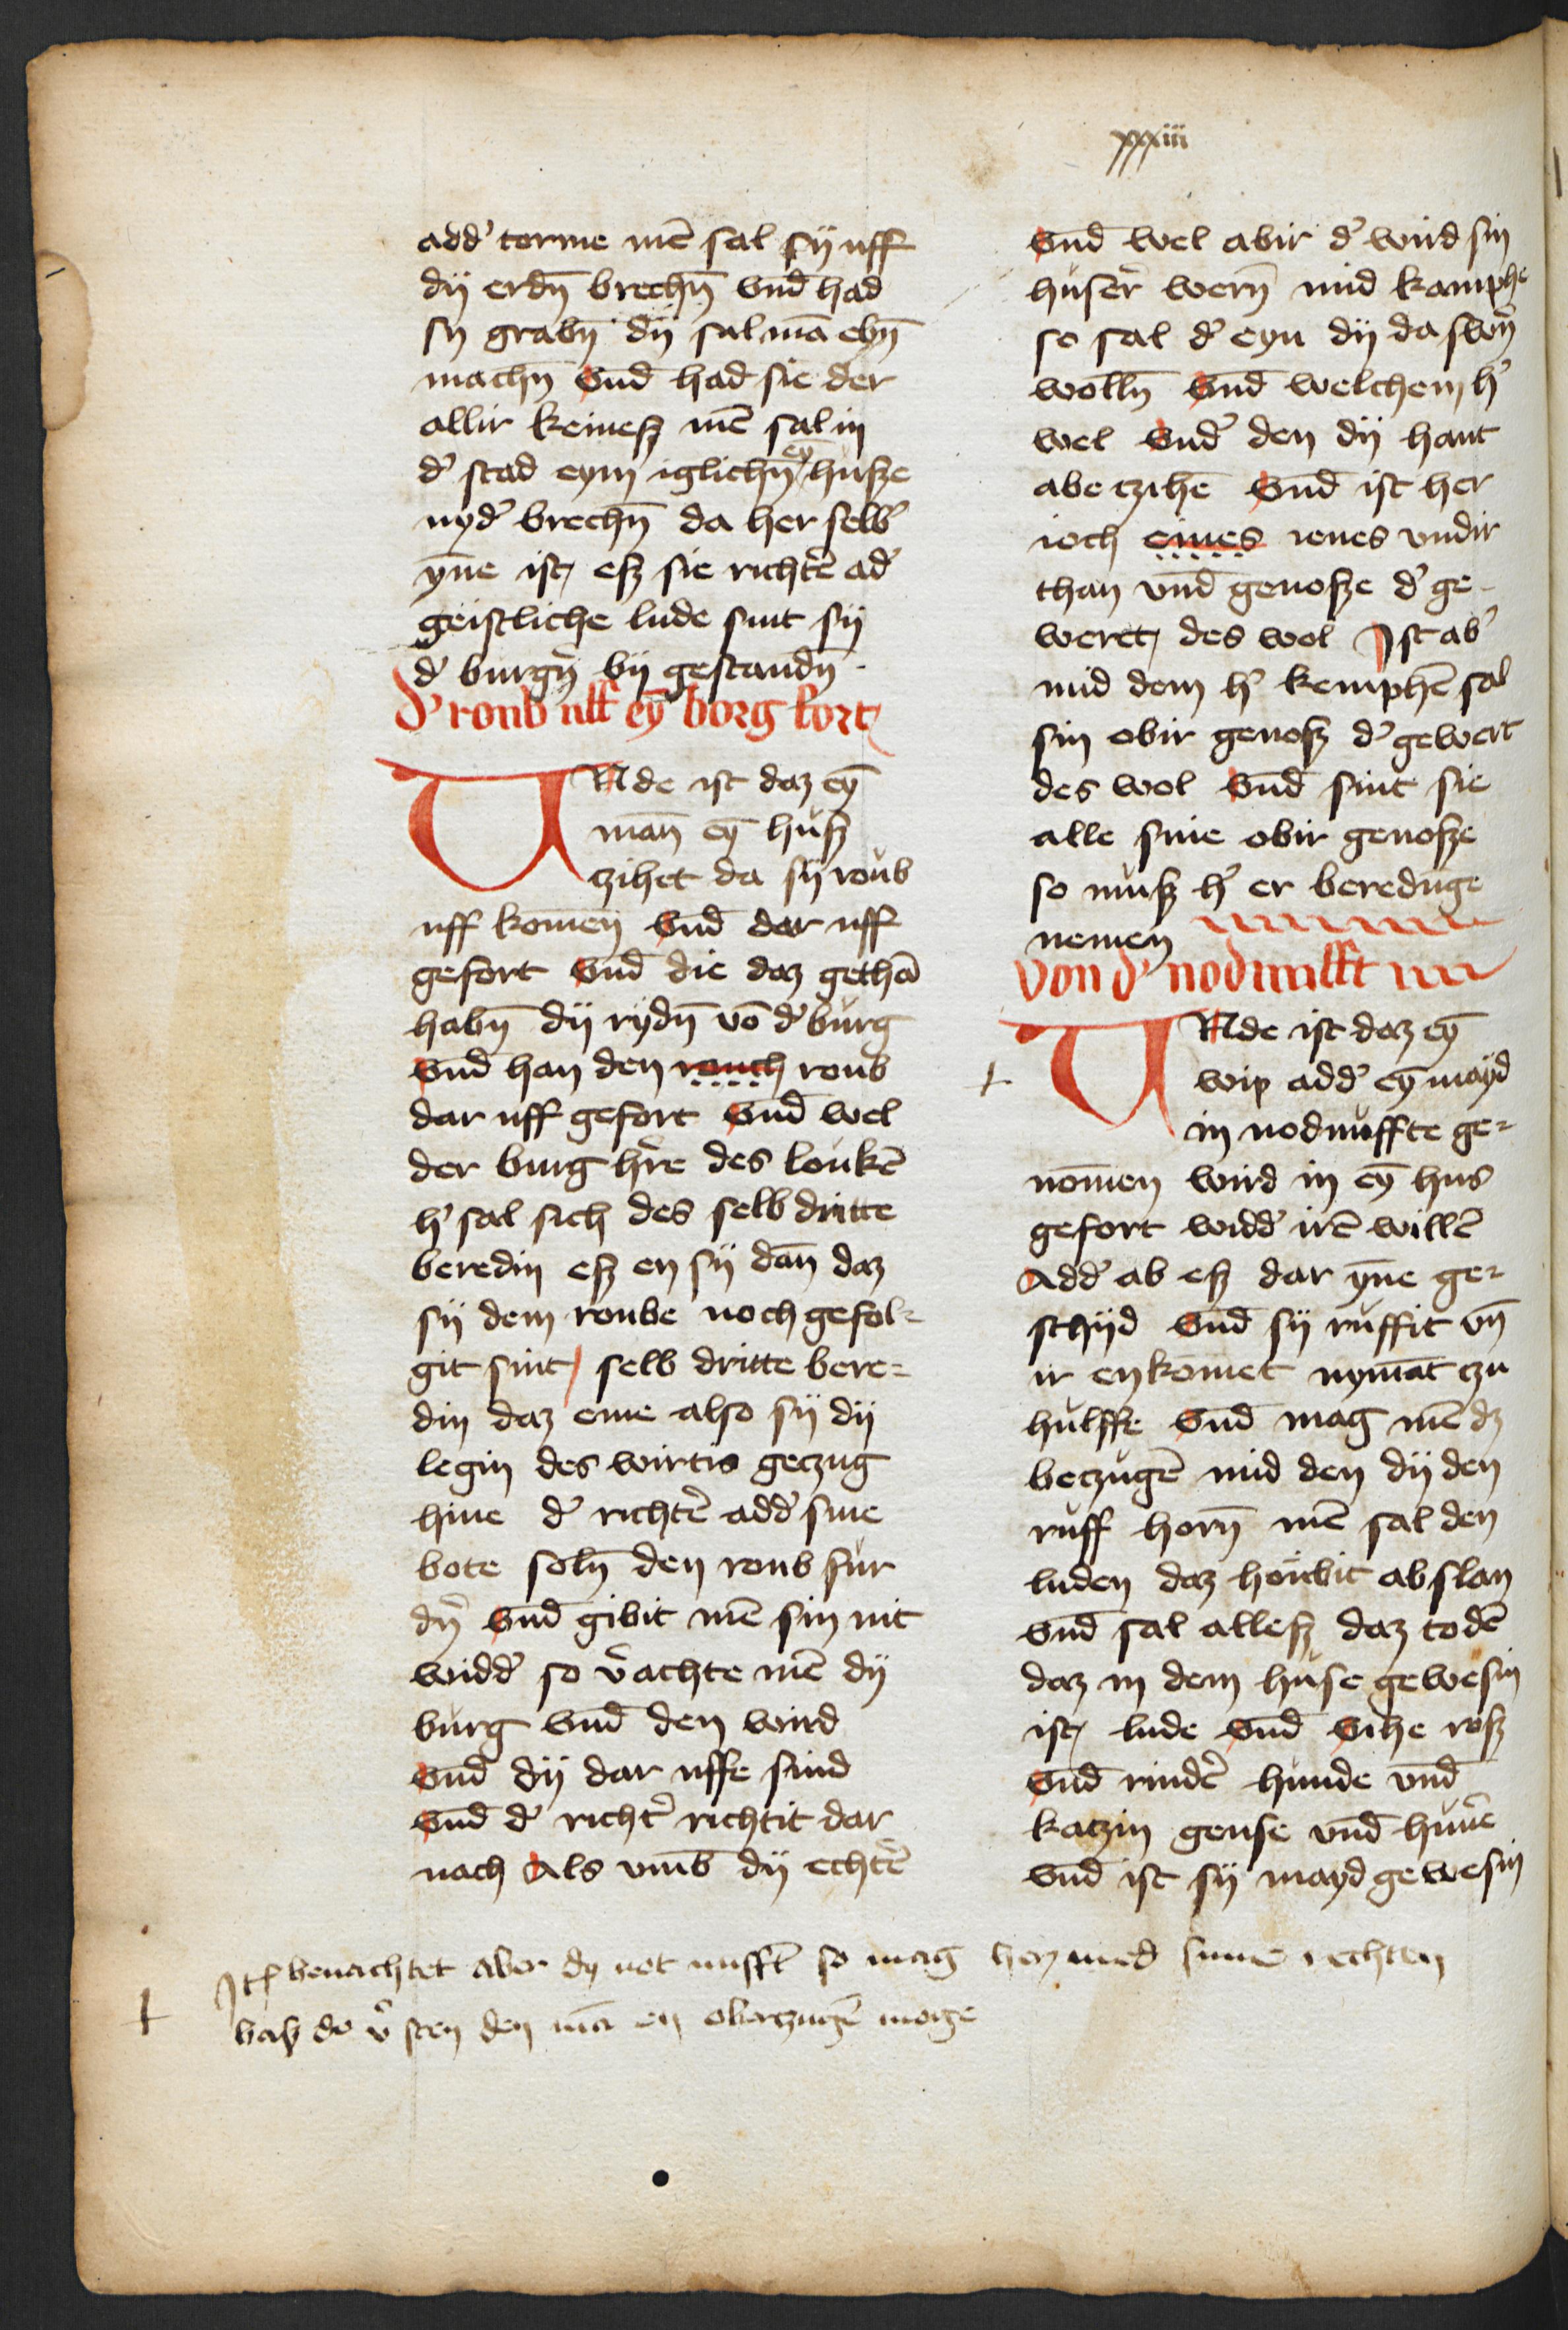 xxxiii
add' torme mē sal sij uff
dij erdn̄ brechn̄ vnd̄ had
sy grabn̄ dij sal mā ebn̄
machn̄ vnd̄ had sie der
allir keinesz mē sal in
d' stad eym iglichn̄ eȳ husze
nyd' brechn̄ da her selb'
yn̄e ist esz sie richtē ad'
geistliche lude sint sij
d' burgn̄ bij gestandn̄
D' roub uff eȳ borg fort
VNde ist daz eȳ
man̄ eȳ husz
czihet da sij roub
uff kom̄en vnd̄ dar uff
gefort vnd̄ die daz gethā
habn̄ dij rydn̄ vō d' burg
vnd̄ han den rouch roub
dar uff gefort vnd̄ wel
der burg h're des loukē
h' sal sich des selb dritte
beredin esz en sij dan̄ daz
sij dem roube noch gefol-
git sint selb dritte bere-
din daz eme also sij dij
legin des wirtis geczug
hine d' richt'e add' sine
bote soln̄ den roub fur
dn̄ vnd̄ gibit mē sin nit
widd' so v'achte mē dij
burg vnd̄ den wird
vnd̄ dij dar uffe sind
vnd̄ d' richt' richtit dar
nach Als vmb̄ dij echt'e
vnd̄ wel abir d' wird sin
huser wern̄ mid kamphe
so sal d' eyn dij da swn̄
wolln̄ vnd̄ welchem h'
wel vnd' den dij hant
abe czihē vnd̄ ist her
ioch eines ienes vndir
than vnd̄ genosze d' ge-
weret des wol Ist ab'
mid dem h' kemphē sal
sin obir genosz d' gewert
des wol vnd̄ sint sie
alle sine obir genosze
so musz h' er beredūge
nemen
Von d' nodnufft
VNde ist daz eȳ
wip add' eȳ mayd
in nodnuffte ge-
nom̄en wird in eȳ hus
gefort widd' irē willē
Add' ab esz dar yn̄e ge-
schijd vnd̄ sij ruffit vn̄
ir en kom̄et nymāt czu
hulffe vnd̄ mag mē dz
beczugē mid den dij den
ruff horn̄ mē sal den
luden daz houbit abslan
vnd̄ sal allesz daz todē
daz in dem huse gewesin
ist lude vnd̄ vihe rosz
vnd̄ rind'e hunde vnd̄
katzin gense vnd̄ hun'e
vnd̄ ist sij mayd gewesin
It' benachtet aber dy not nufft so mag her med sime rechten
basz do v' sten den mā en obirczugē moge